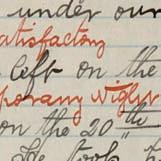 under our
satisfactory
left on the
porary night
on the 20th
He took